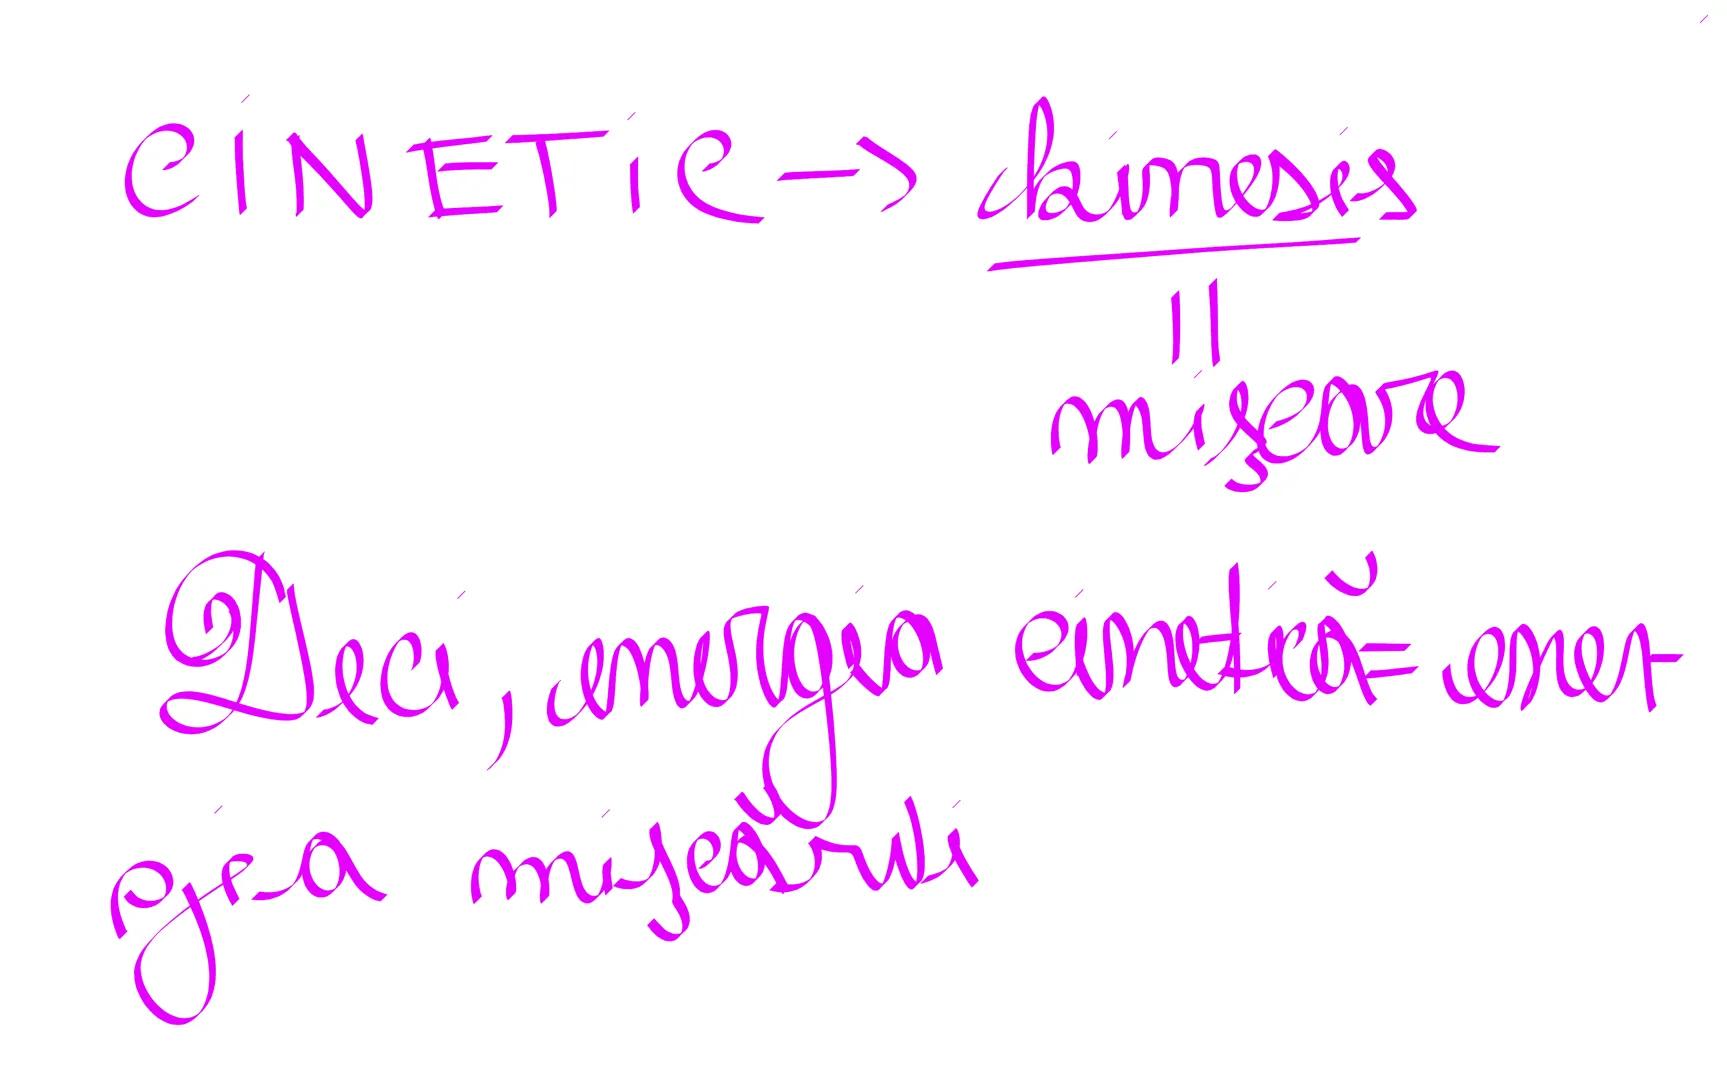 CINETIC → kinesis
||
mișcare
Deci, energia cinetică = ener-
gia mișcării